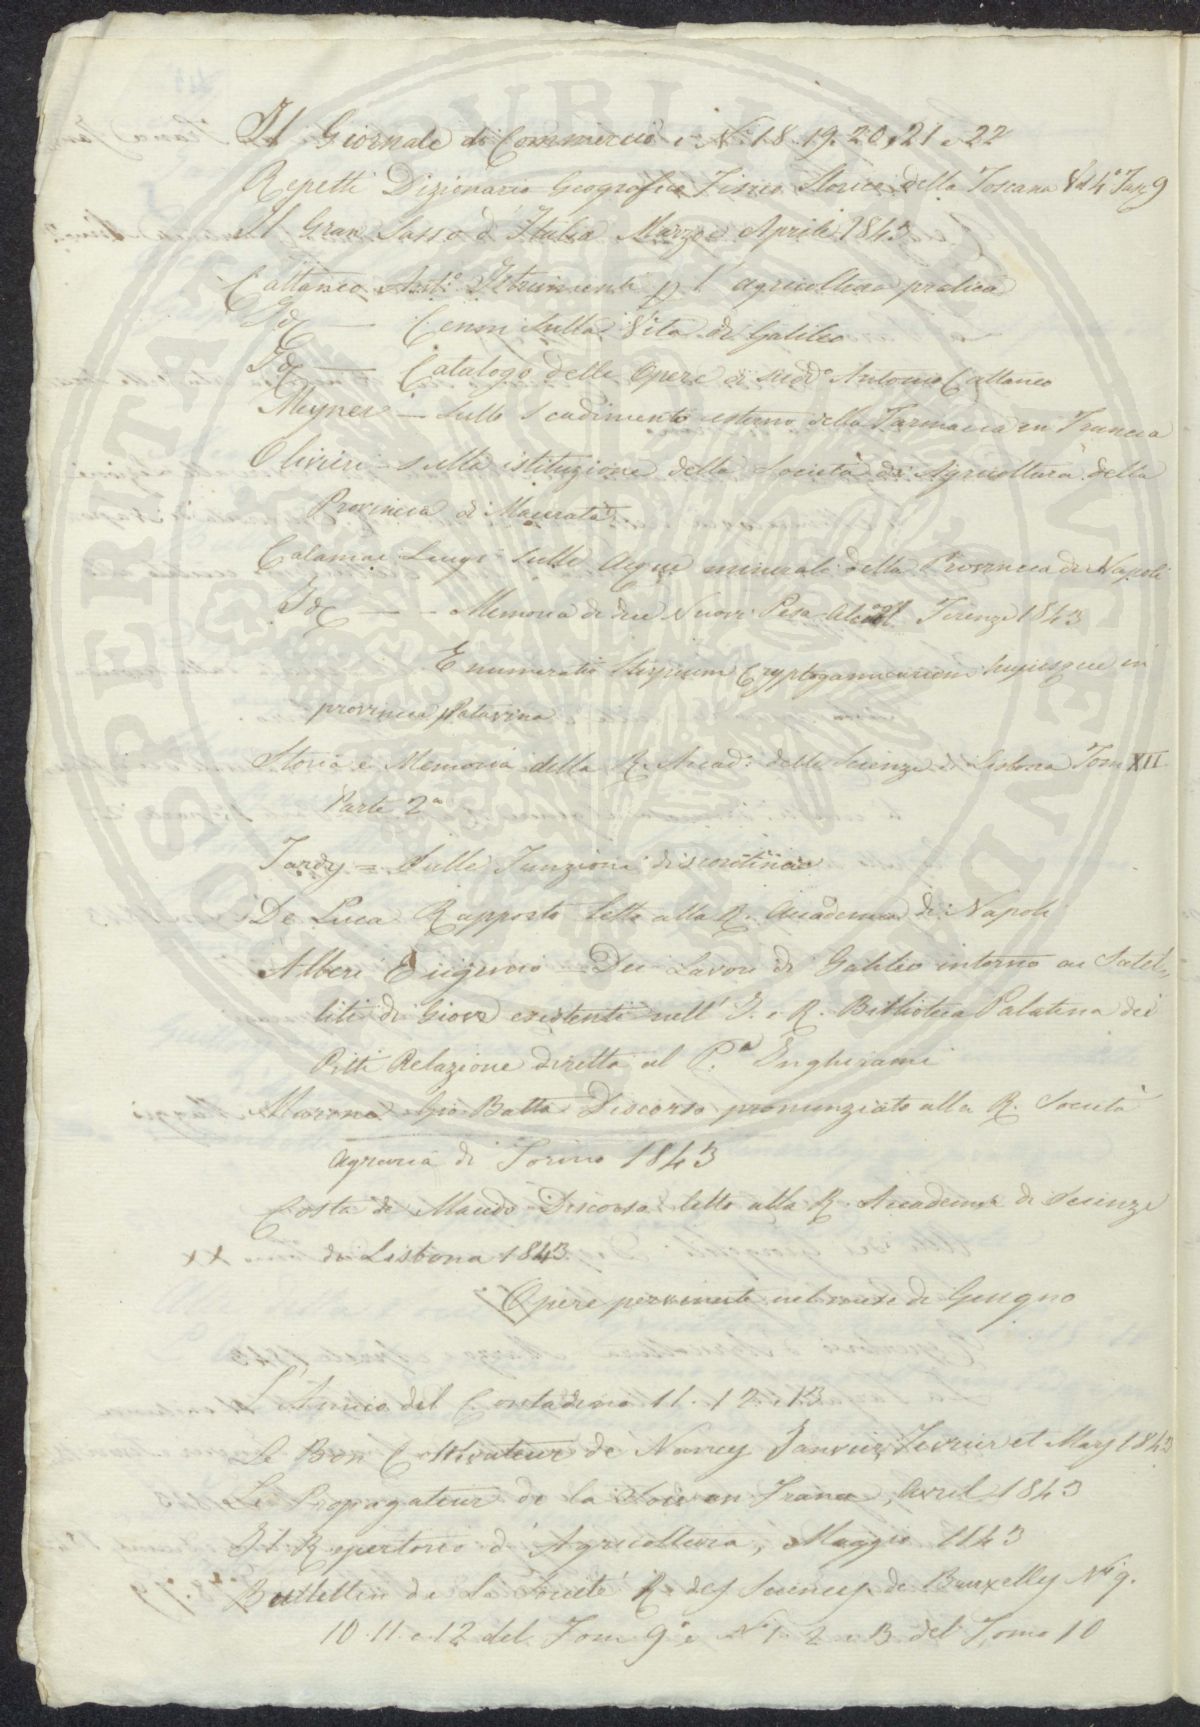 Il Giornale di Commercio Ni 18 19. 20, 21 e 22
Repetti Dizionario Geografico Fisico Storico della Toscana Vol 4° Fas 9
Il Gran Sasso d'Italia Marzo e Aprile 1843
Cattaneo Anto Istrumenti p l'agricoltura pratica
Id — Cenni sulla Vita di Galileo
Id — Catalogo delle Opere di Antonio Cattaneo
Meynier — Sullo Scadimento esterno della Farmacia in Francia
Oliviri — sulla istituzione della Società di Agricoltura della
Provincia di Macerata
Calamai Luigi Sulle Acque minerali della Provincia di Napoli
Id — - Memoria di due Nuovi Pesa-Alcool Firenze 1843
Enumeratio Stirpium Cryptogamicarum hujusque in
provincia Patavina
Storia e Memoria della R. Accad: delle Scienze di Lisbona Tom XII
Parte 2a
Tardy = Sulle Funzioni discontinue
De Luca Rapposto letto alla R. Accademia di Napoli
Alberi Eugenio = Dei Lavori di Galileo intorno ai Satel-
liti di Giove esistenti nell' I. e R. Biblioteca Palatina dei
Pitti Relazione diretta al P.e Inghirami
Gio Batta Discorso pronunziato alla R. Società
agraria di Torino 1843
Costa di Macedo Discorso letto alla R. Accademia di Scienze
di Lisbona 1843
Opere pervenute nel mese di Giugno
L'Amico del Contadino 11. 12. 13
Le Bon Cultivateur de Nancy Janvier, Fevrier et Mars 1843
Le Propagateur de la Soie en France, Avril 1843
Il Repertorio d'Agricoltura, Maggio 1843
Bulletin de La Société R. des Sciences de Bruxelles Ni 9.
10. 11. e 12 del Tom 9° e Ni 1. 2 e 3 del Tomo 10
COSPERITATE PVBLICA AVGENDA